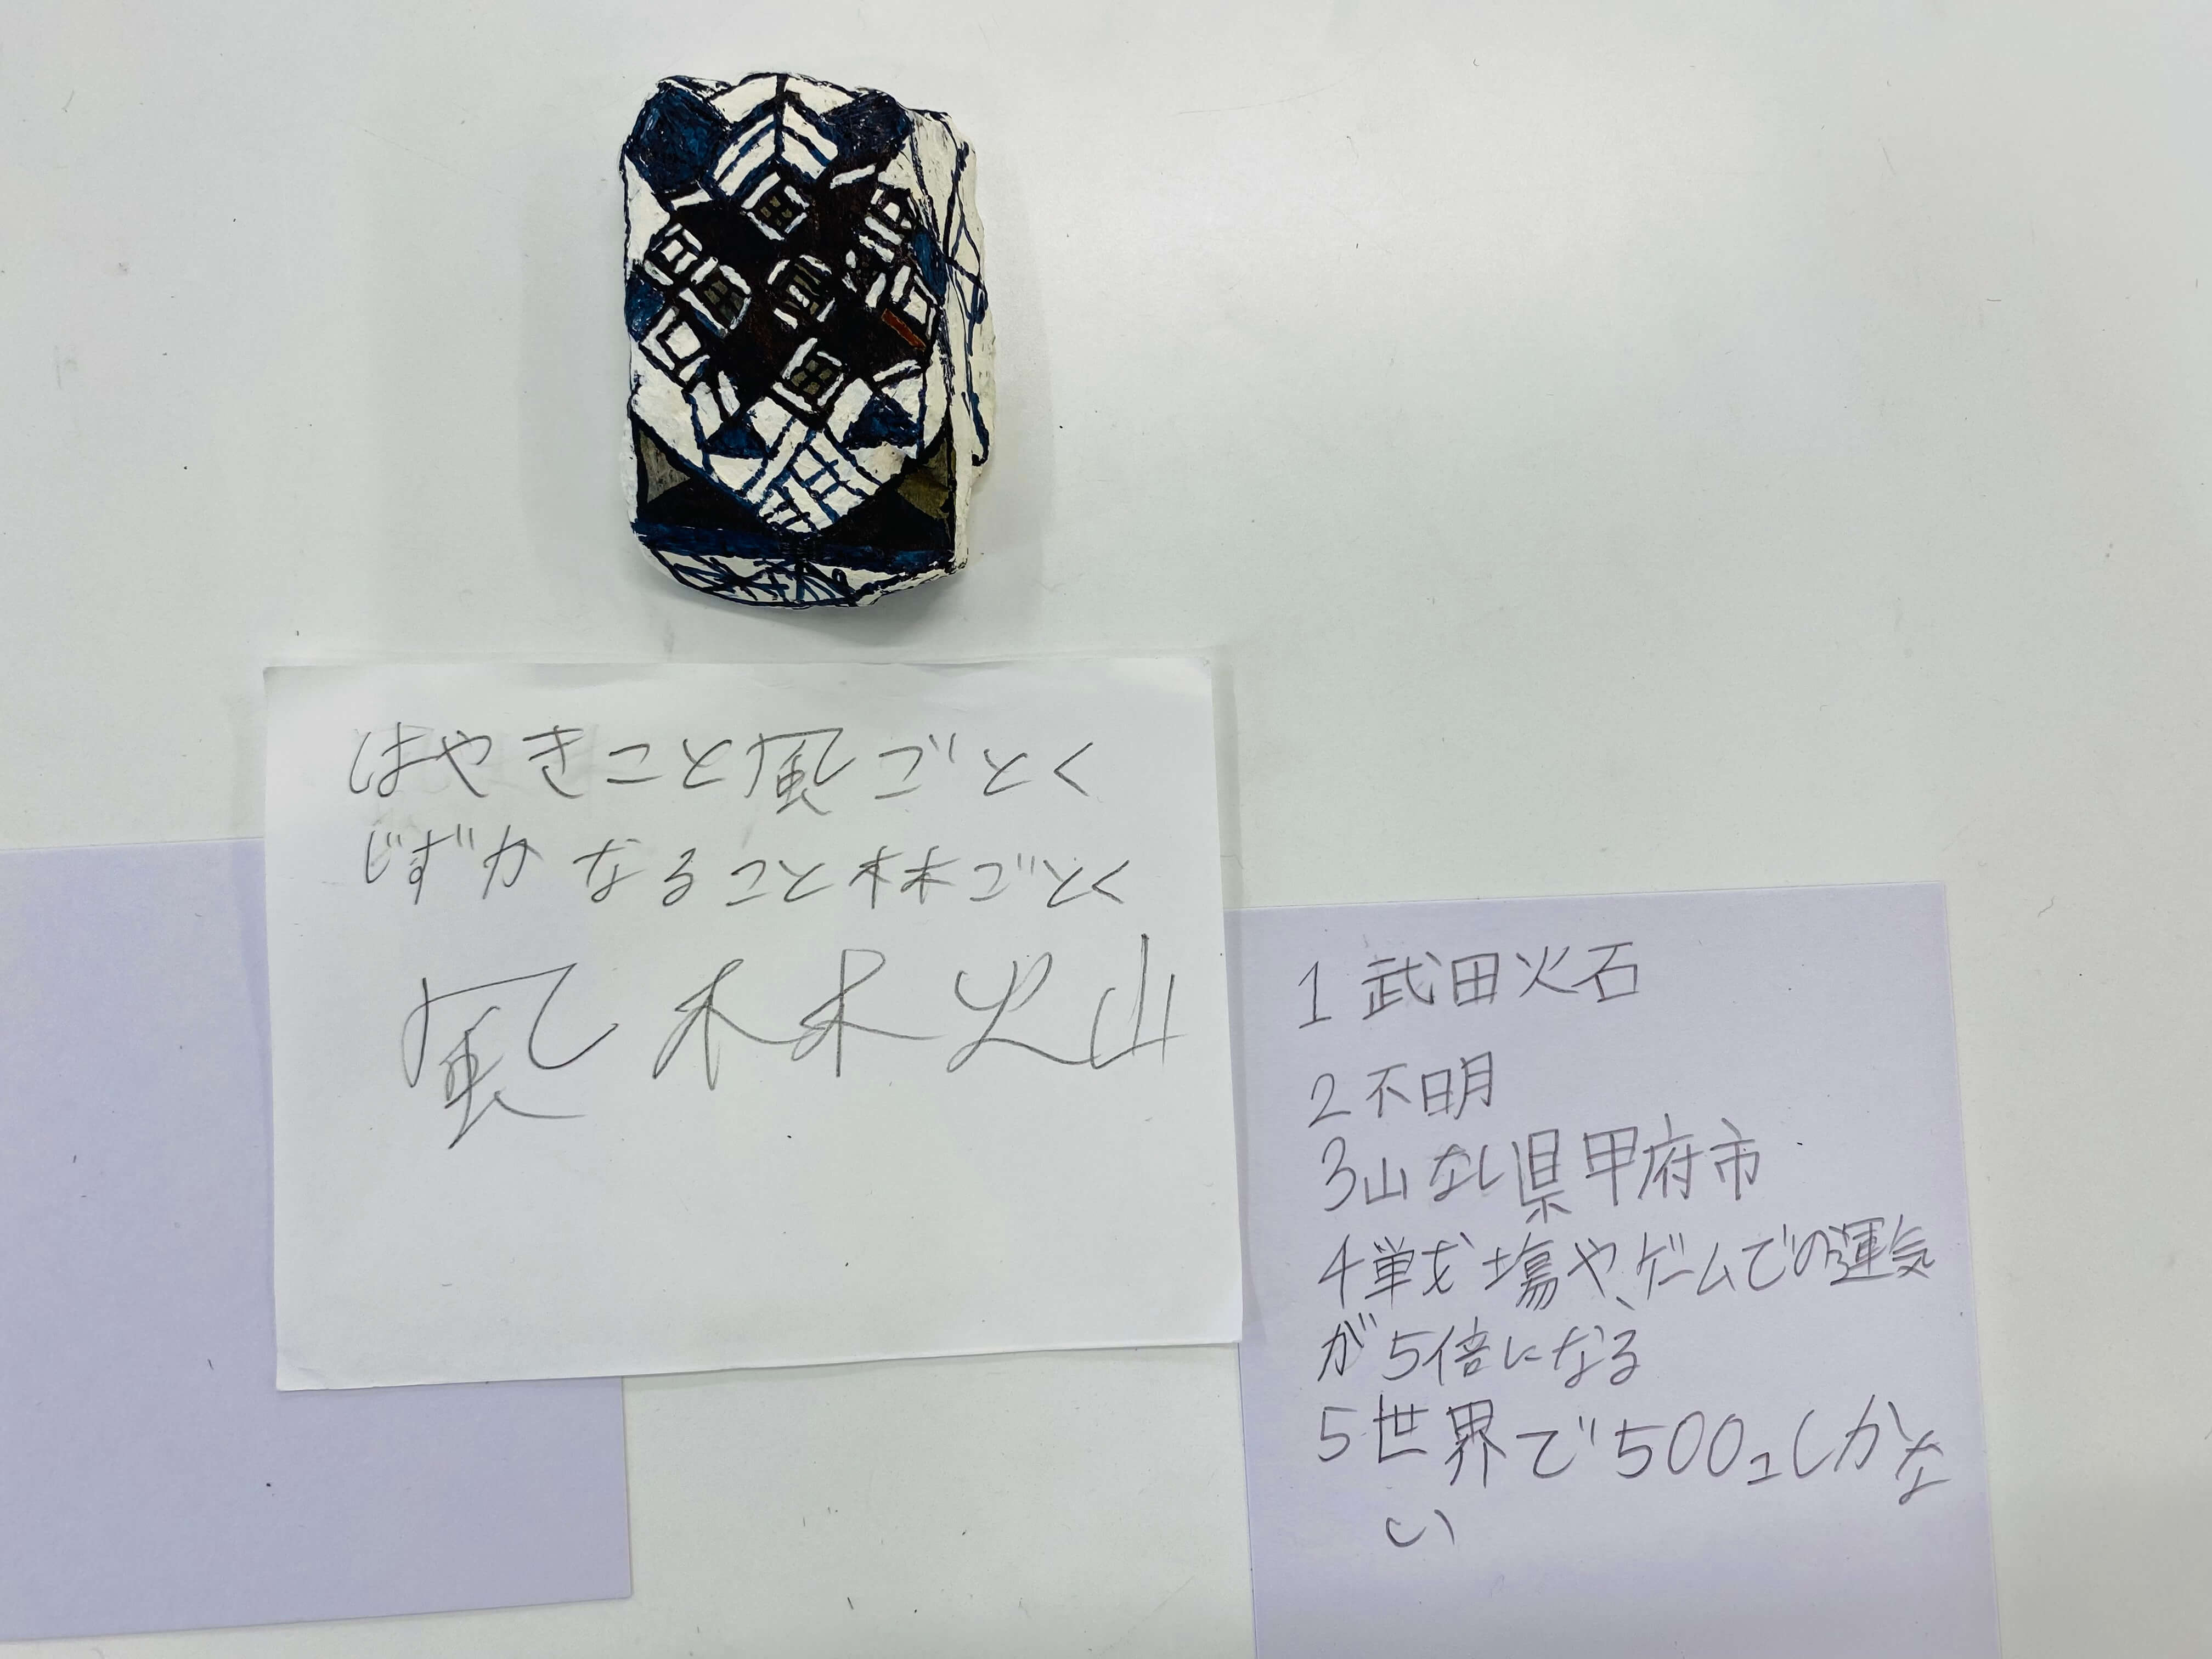 はやきこと風ごとく
じずかなること林ごとく
風林火山
1 武田火石
2 不明
3 山なし県甲府市
4 戦場や、ゲームでの運気
が5倍になる
5 世界で500コしかな
い